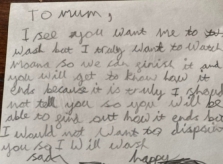 To mum,
I see you want me to
wash but I truly want to watch
moana so we can finish it and
you will get to know how it
ends because it is truly I should
not tell you so you will be
able to find out how it ends but
I would not want to
you so I will wash
sad happy